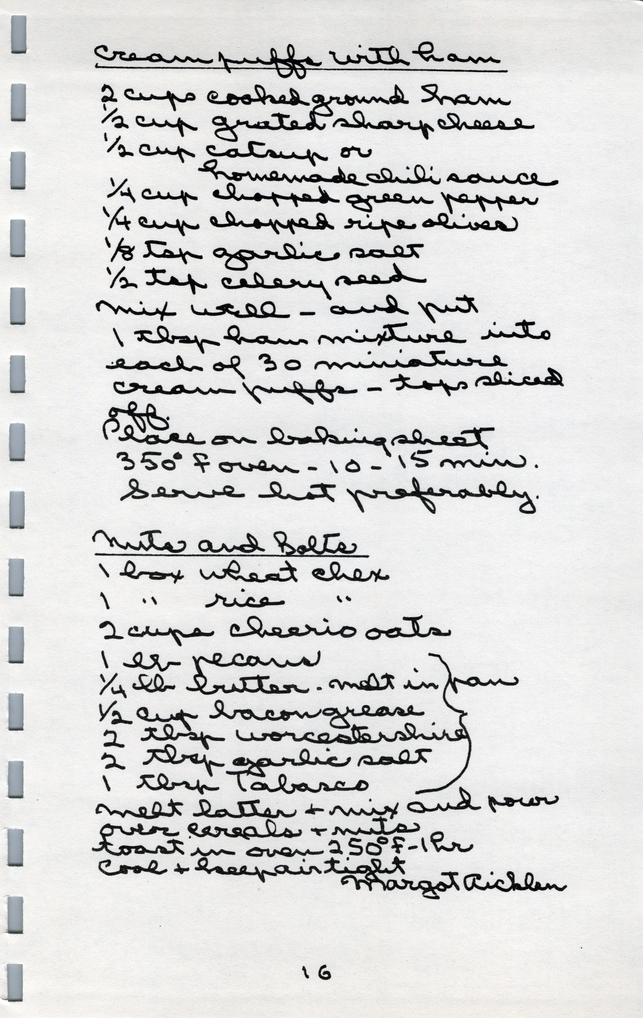 cream puffs with ham
2 cups cooked ground ham
1/2 cup grated sharp cheese
1/2 cup catsup or
homemade chili sauce
1/4 cup chopped green pepper
1/4 cup chopped ripe olives
1/8 tsp garlic salt
1/2 tsp celery seed
mix well - and put
1 tbsp ham mixture into
each of 30 miniature
cream puffs - tops sliced
off.
Place on baking sheet
350° F oven - 10 - 15 min.
Serve hot preferably.
Nuts and Bolts
1 box wheat chex
1 " rice "
2 cups cheerio oats
1 lb pecans
1/4 lb butter. melt in pan
1/2 cup bacon grease
2 tbsp worcestershire
2 tbsp garlic salt
1 tbsp Tabasco
melt latter + mix and pour
over cereals + nuts
toast in oven 250° F - 1 hr
Cool + keep air tight
Margot
16